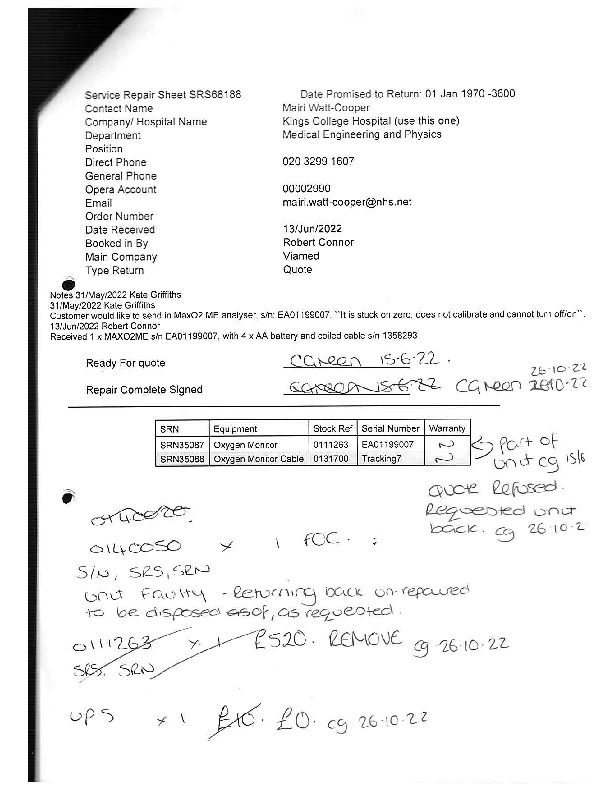 Service Repair Sheet SRS68188 Date Promised to Return: 01 Jan 1970 -3600
Contact Name Mairi Watt-Cooper
Company/ Hospital Name Kings College Hospital (use this one)
Department Medical Engineering and Physics
Position
Direct Phone 020 3299 1607
General Phone
Opera Account 00002990
Email mairi.watt-cooper@nhs.net
Order Number
Date Received 13/Jun/2022
Booked in By Robert Connor
Main Company Viamed
Type Return Quote
Notes 31/May/2022 Kate Griffiths
31/May/2022 Kate Griffiths
Customer would like to send in MaxO2 ME analyser, s/n: EA01199007, ``It is stuck on zero, does not calibrate and cannot turn off/on``.
13/Jun/2022 Robert Connor
Received 1 x MAXO2ME s/n EA01199007, with 4 x AA battery and coiled cable s/n 1358293
Ready For quote CGreen 15-6-22.
26-10-22
Repair Complete Signed CGreen 15-6-22 CGreen 26-10-22
SRN Equipment Stock Ref Serial Number Warranty
SRN35087 Oxygen Monitor 0111263 EA01199007 N
SRN35088 Oxygen Monitor Cable 0131700 Tracking7 N
Part of
unit cg 15/6
Quote Refused.
Requested unit
back. cg 26-10-2
0140050 x 1 FOC.
S/N, SRS, SRN
Unit Faulty - Returning back un-repaired
to be disposed of, as requested.
0111263 x 1 £520. REMOVE cg 26-10-22
SRS, SRN
UPS x 1 £10. £0. cg 26-10-22